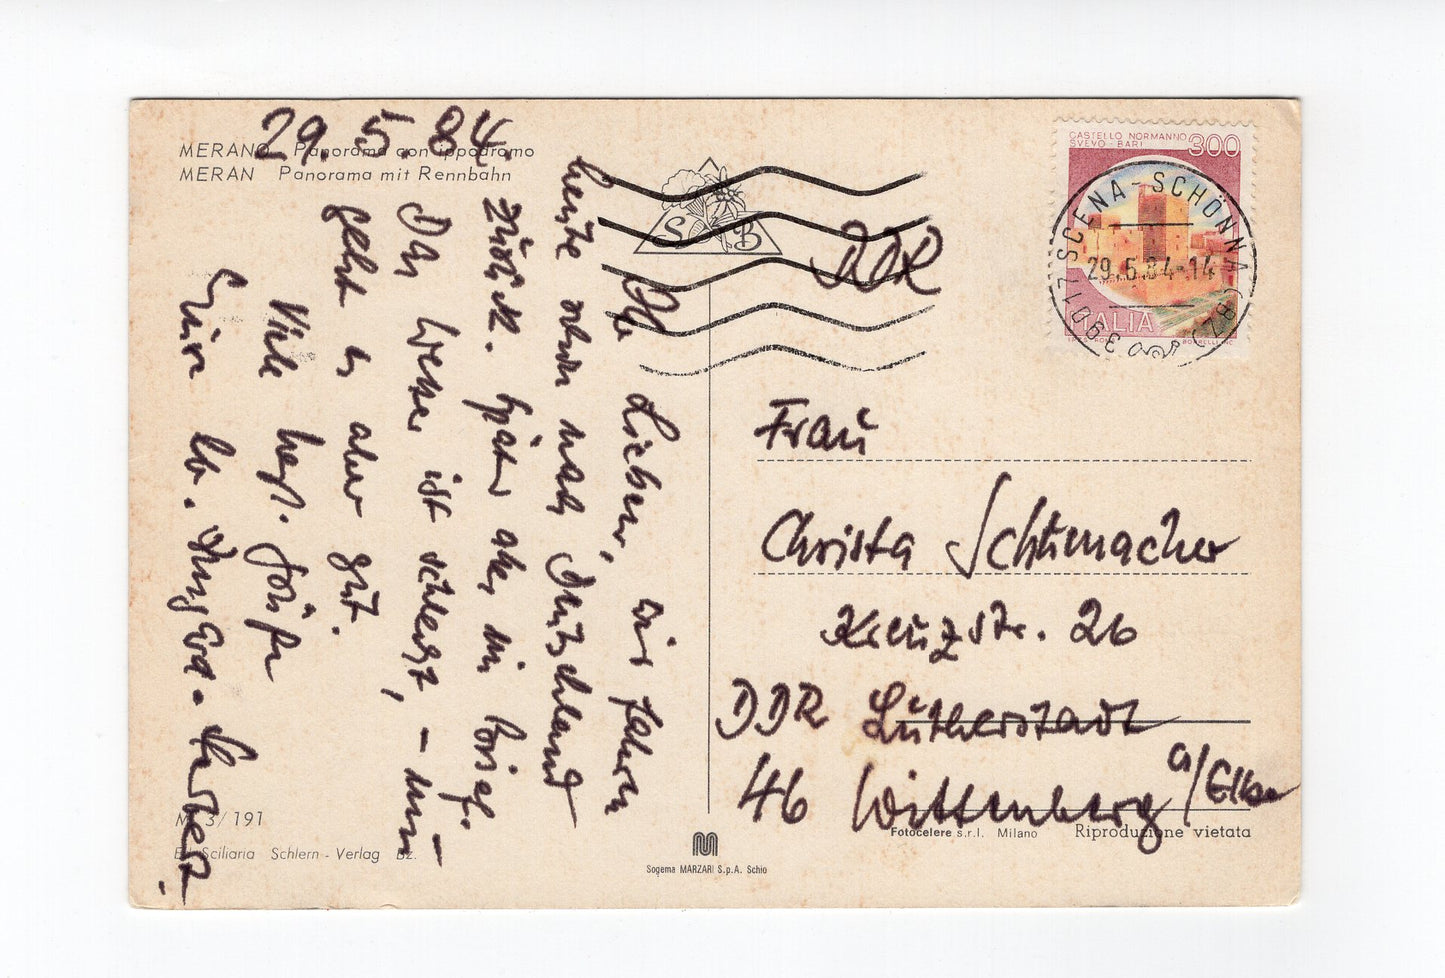 MERANO Panorama con ippodromo
MERAN Panorama mit Rennbahn
29.5.84.
Ihr Lieben, wir fahren
heute schon nach Deutschland
zurück. Später mehr im Brief.
Das Wetter ist schlecht, – uns
geht es aber gut.
Viele herzl. Grüße
Eure
S B
DDR
CASTELLO NORMANNO
SVEVO - BARI
300
ITALIA
39017 SCENA - SCHÖNNA (BZ)
29.5.84-14
Frau
Christa Schumacher
Kreuzstr. 26
DDR Lutherstadt
46 Wittenberg a/Elbe
3/191
Ed. Sciliaria Schlern - Verlag Bz.
Sogema MARZARI S.p.A. Schio
Fotocelere s.r.l. Milano
Riproduzione vietata